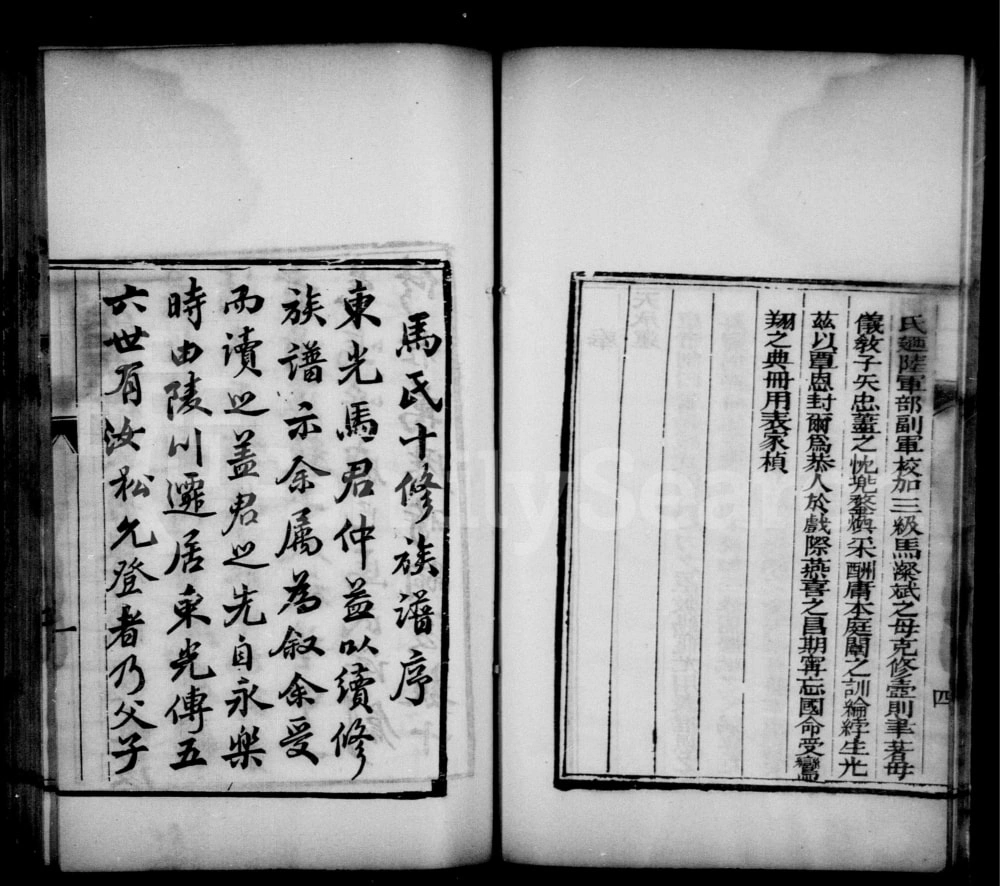 氏廼陸軍部副軍校加三級馬濚斌之母克修壼則聿著母
儀敎子矢忠藎之忱堲鍪煥采酬庸本庭闈之訓綸綍生光
茲以覃恩封爾為恭人於戲際燕喜之昌期寗忘國命受鸞
翔之典冊用表家楨
四
馬氏十修族譜序
東光馬君仲益以續修
族譜示余属為叙余受
而讀之盖君之先自永樂
時由陵川遷居東光傳五
六世有汝松允登者乃父子
一